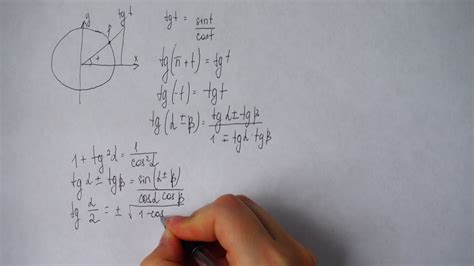 y tg t
t x
tg t = sin t / cos t
tg(π + t) = tg t
tg(-t) = -tg t
tg(α ± β) = tg α ± tg β / 1 ∓ tg α · tg β
1 + tg²α = 1 / cos²α
tg α ± tg β = sin(α ± β) / cos α cos β
tg α/2 = ± √ 1 - cos